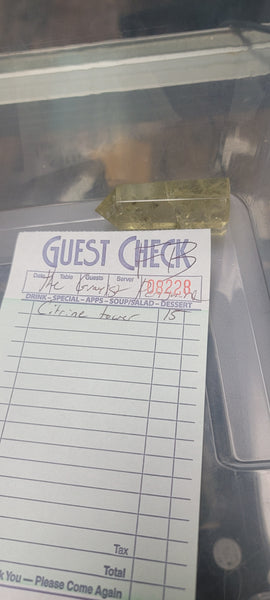 GUEST CHECK
Date Table Guests Server
The 08228
DRINK – SPECIAL – APPS – SOUP/SALAD – DESSERT
Citrine tower 15
Tax
Total
k You — Please Come Again